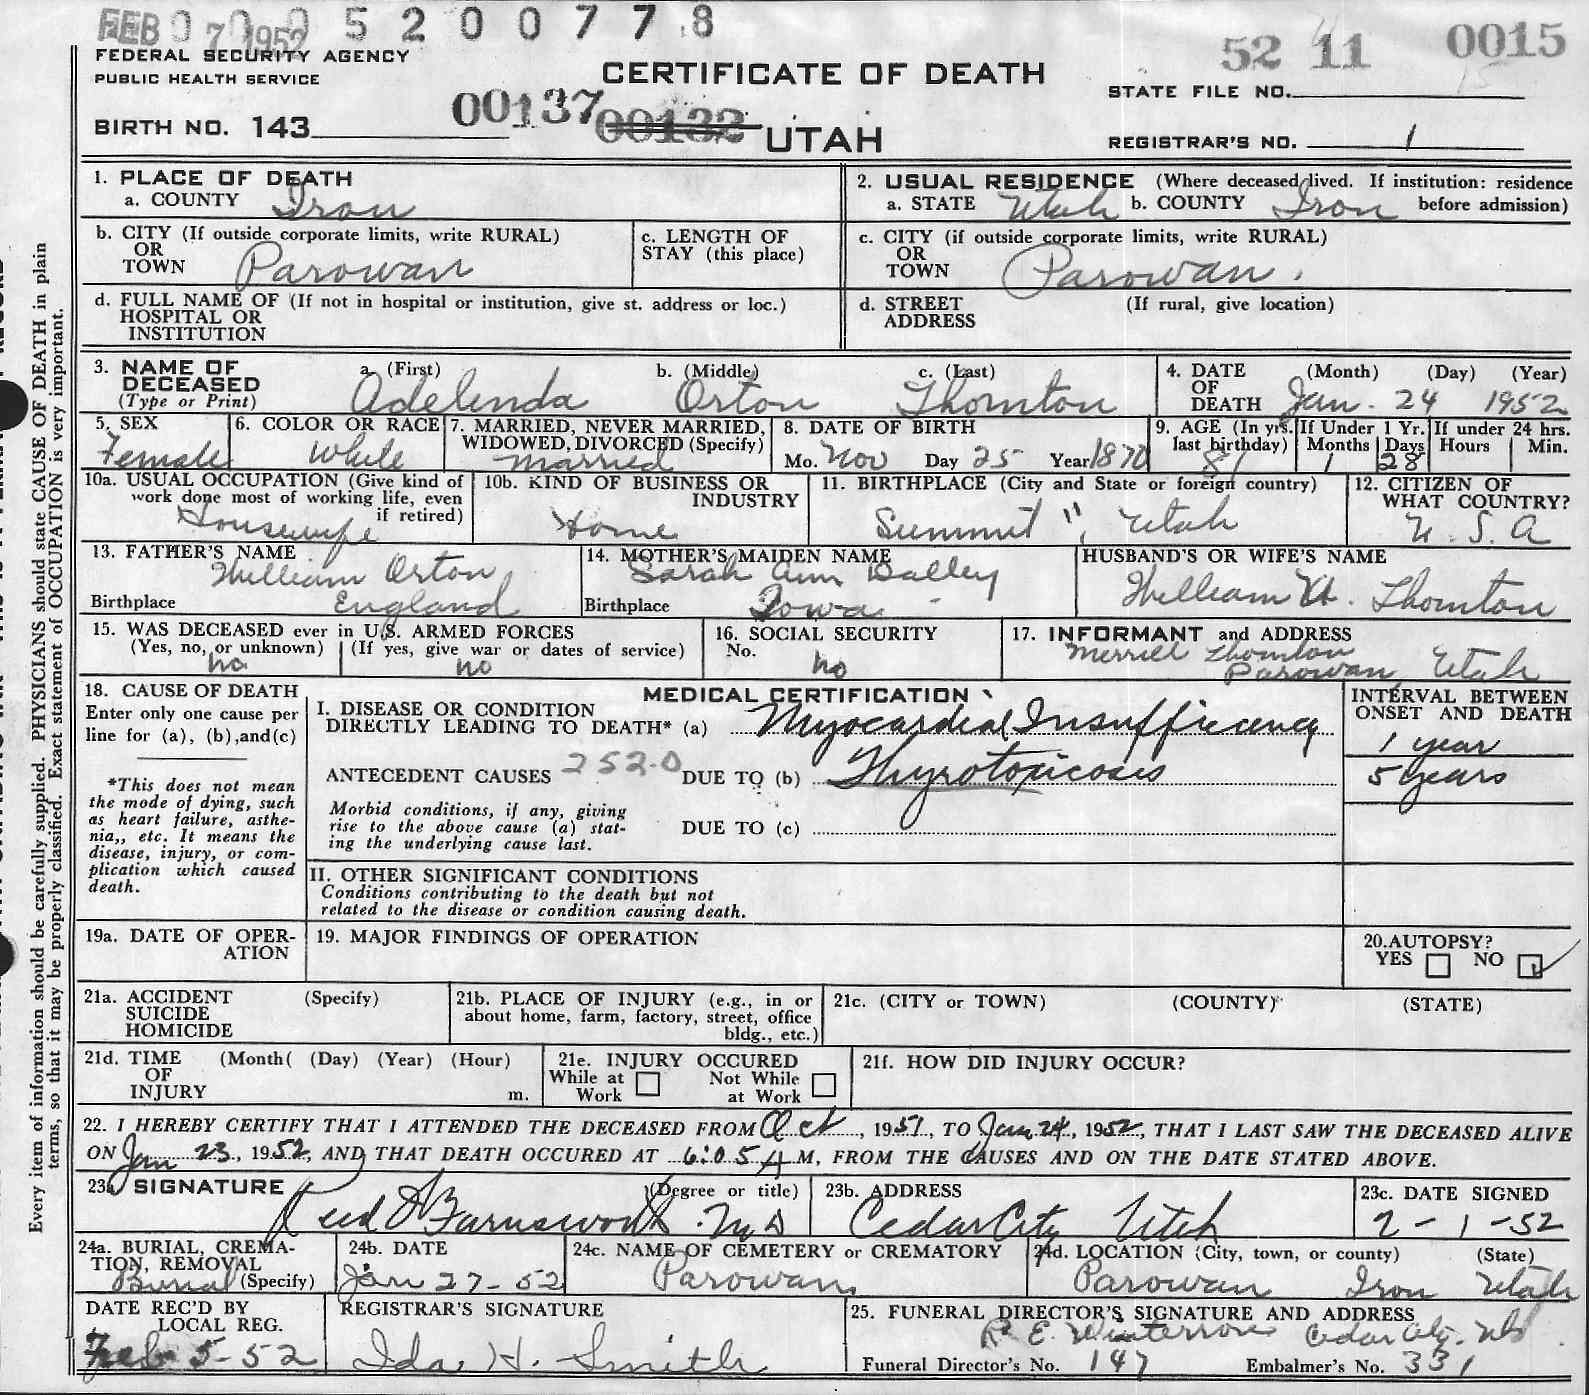 FEB 07 1952 0 5 2 0 0 7 7 8
52 11 0015
FEDERAL SECURITY AGENCY
PUBLIC HEALTH SERVICE
CERTIFICATE OF DEATH
STATE FILE NO. 15
BIRTH NO. 143 00137 00132 UTAH
REGISTRAR'S NO. 1
Every item of information should be carefully supplied. PHYSICIANS should state CAUSE OF DEATH in plain
terms, so that it may be properly classified. Exact statement of OCCUPATION is very important.
1. PLACE OF DEATH
a. COUNTY Iron
2. USUAL RESIDENCE (Where deceased lived. If institution: residence
a. STATE Utah b. COUNTY Iron before admission)
b. CITY (If outside corporate limits, write RURAL)
OR
TOWN Parowan
c. LENGTH OF
STAY (this place)
c. CITY (if outside corporate limits, write RURAL)
OR
TOWN Parowan.
d. FULL NAME OF (If not in hospital or institution, give st. address or loc.)
HOSPITAL OR
INSTITUTION
d. STREET (If rural, give location)
ADDRESS
3. NAME OF DECEASED
(Type or Print)
a. (First) b. (Middle) c. (Last)
Adelinda Orton Thornton
4. DATE (Month) (Day) (Year)
OF
DEATH Jan. 24 1952
5. SEX
Female
6. COLOR OR RACE
White
7. MARRIED, NEVER MARRIED,
WIDOWED, DIVORCED (Specify)
Married
8. DATE OF BIRTH
Mo. Nov Day 25 Year 1870
9. AGE (In yrs. last birthday)
81
If Under 1 Yr.
Months Days
1 28
If under 24 hrs.
Hours Min.
10a. USUAL OCCUPATION (Give kind of
work done most of working life, even
if retired)
Housewife
10b. KIND OF BUSINESS OR
INDUSTRY
Home
11. BIRTHPLACE (City and State or foreign country)
Summit", Utah
12. CITIZEN OF
WHAT COUNTRY?
U. S. A
13. FATHER'S NAME
William Orton
Birthplace England
14. MOTHER'S MAIDEN NAME
Sarah Ann Dalley
Birthplace Iowa
HUSBAND'S OR WIFE'S NAME
William H. Thornton
15. WAS DECEASED ever in U.S. ARMED FORCES
(Yes, no, or unknown) (If yes, give war or dates of service)
no no
16. SOCIAL SECURITY
No.
no
17. INFORMANT and ADDRESS
Merrill Thornton
Parowan Utah
18. CAUSE OF DEATH
Enter only one cause per
line for (a), (b),and(c)
*This does not mean
the mode of dying, such
as heart failure, asthe-
nia,, etc. It means the
disease, injury, or com-
plication which caused
death.
MEDICAL CERTIFICATION
I. DISEASE OR CONDITION
DIRECTLY LEADING TO DEATH* (a) Myocardial Insufficiency
ANTECEDENT CAUSES 252.0 DUE TO (b) Thyrotoxicosis
Morbid conditions, if any, giving
rise to the above cause (a) stat-
ing the underlying cause last.
DUE TO (c)
INTERVAL BETWEEN
ONSET AND DEATH
1 year
5 years
II. OTHER SIGNIFICANT CONDITIONS
Conditions contributing to the death but not
related to the disease or condition causing death.
19a. DATE OF OPER-
ATION
19. MAJOR FINDINGS OF OPERATION
20.AUTOPSY?
YES NO ✓
21a. ACCIDENT (Specify)
SUICIDE
HOMICIDE
21b. PLACE OF INJURY (e.g., in or
about home, farm, factory, street, office
bldg., etc.)
21c. (CITY or TOWN) (COUNTY) (STATE)
21d. TIME (Month( (Day) (Year) (Hour)
OF
INJURY m.
21e. INJURY OCCURED
While at Work Not While at Work
21f. HOW DID INJURY OCCUR?
22. I HEREBY CERTIFY THAT I ATTENDED THE DECEASED FROM Oct, 1951, TO Jan. 24, 1952, THAT I LAST SAW THE DECEASED ALIVE
ON Jan 23, 1952, AND THAT DEATH OCCURED AT 6:05 A M, FROM THE CAUSES AND ON THE DATE STATED ABOVE.
23a SIGNATURE (Degree or title)
Reed Farnsworth MD
23b. ADDRESS
Cedar City Utah
23c. DATE SIGNED
2-1-52
24a. BURIAL, CREMA-
TION, REMOVAL
Burial (Specify)
24b. DATE
Jan 27-52
24c. NAME OF CEMETERY or CREMATORY
Parowan
24d. LOCATION (City, town, or county) (State)
Parowan Iron Utah
DATE REC'D BY
LOCAL REG.
Feb 5-52
REGISTRAR'S SIGNATURE
Ida H. Smith
25. FUNERAL DIRECTOR'S SIGNATURE AND ADDRESS
E. Cedar City
Funeral Director's No. 147 Embalmer's No. 331